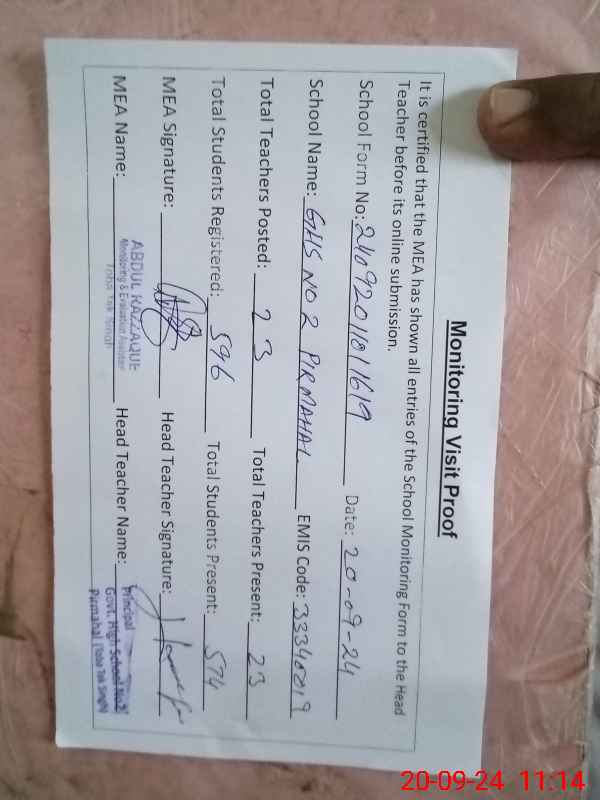 Monitoring Visit Proof
It is certified that the MEA has shown all entries of the School Monitoring Form to the Head
Teacher before its online submission.
School Form No: 24092011811619 Date: 20-09-24
School Name: GHS NO 2 PIRMAHAL EMIS Code: 33340019
Total Teachers Posted: 23 Total Teachers Present: 23
Total Students Registered: 596 Total Students Present: 574
MEA Signature: Head Teacher Signature:
MEA Name: ABDUL RAZZAQUE Head Teacher Name: Principal
Monitoring & Evaluation Assistant Govt. High School No.2
Toba Tek Singh Pirmahal (Toba Tek Singh)
20-09-24 11:14